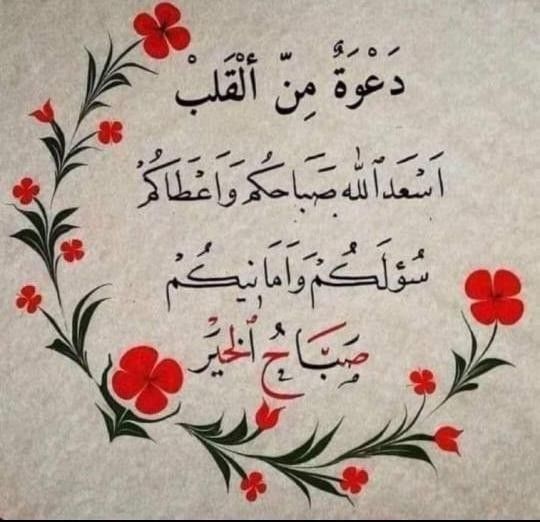 دَعْوَةٌ مِنّ ألْقَلبْ
اَسْعَدَ ٱللّٰه صَبَاحكُم وَاَعْطَاكُمْ
سُؤلَكُمْ وَاَمَانِيكُمْ
صَبَّاحُ ٱلخَيَرْ